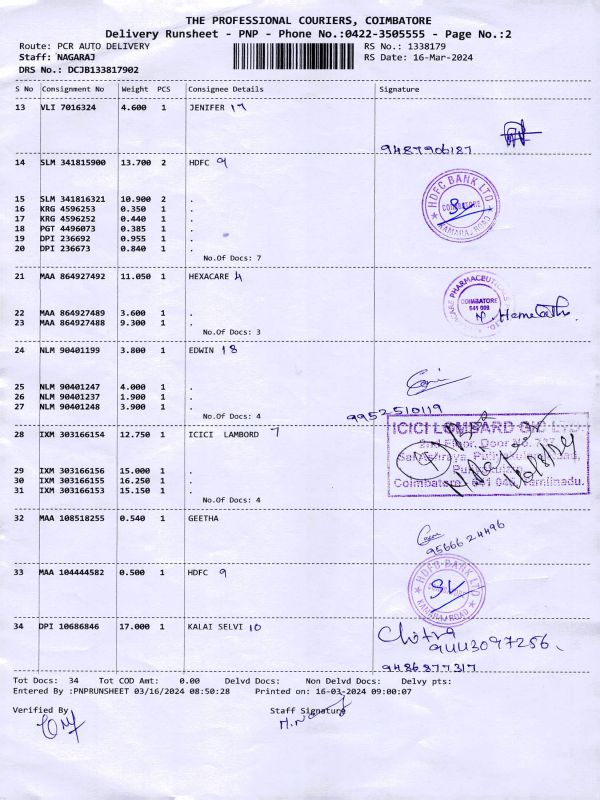 THE PROFESSIONAL COURIERS, COIMBATORE
Delivery Runsheet - PNP - Phone No.:0422-3505555 - Page No.:2
Route: PCR AUTO DELIVERY RS No.: 1338179
Staff: NAGARAJ RS Date: 16-Mar-2024
DRS No.: DCJB133817902
S No Consignment No Weight PCS Consignee Details Signature
13 VLI 7016324 4.600 1 JENIFER 17
9487906187
14 SLM 341815900 13.700 2 HDFC 9
HDFC BANK LTD
COIMBATORE
KAMARAJ ROAD
15 SLM 341816321 10.900 2 .
16 KRG 4596253 0.350 1 .
17 KRG 4596252 0.440 1 .
18 PGT 4496073 0.385 1 .
19 DPI 236692 0.955 1 .
20 DPI 236673 0.840 1 .
No.Of Docs: 7
21 MAA 864927492 11.050 1 HEXACARE 4
COIMBATORE
641 009
22 MAA 864927489 3.600 1 .
23 MAA 864927488 9.300 1 .
No.Of Docs: 3
24 NLM 90401199 3.800 1 EDWIN 18
25 NLM 90401247 4.000 1 .
26 NLM 90401237 1.900 1 .
27 NLM 90401248 3.900 1 .
No.Of Docs: 4
9952510119
28 IXM 303166154 12.750 1 ICICI LAMBORD 7
ICICI LOMBARD GIC LTD
29 IXM 303166156 15.000 1 .
30 IXM 303166155 16.250 1 .
31 IXM 303166153 15.150 1 .
No.Of Docs: 4
Coimbatore - 641 045, Tamilnadu.
32 MAA 108518255 0.540 1 GEETHA
9566624496
33 MAA 104444582 0.500 1 HDFC 9
HDFC BANK LTD
KAMARAJ ROAD
34 DPI 10686846 17.000 1 KALAI SELVI 10
Chitra
9443097256.
9486877317
Tot Docs: 34 Tot COD Amt: 0.00 Delvd Docs: Non Delvd Docs: Delvy pts:
Entered By :PNPRUNSHEET 03/16/2024 08:50:28 Printed on: 16-03-2024 09:00:07
Verified By Staff Signature